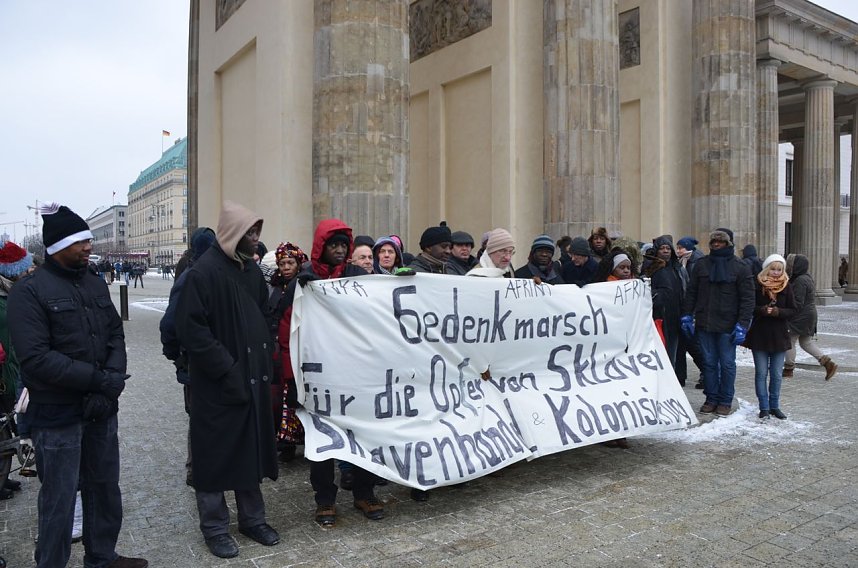 AFRIKA AFRIKA AFRI
Gedenkmarsch
Für die Opfer von Sklaverei
Sklavenhandel & Kolonisierung